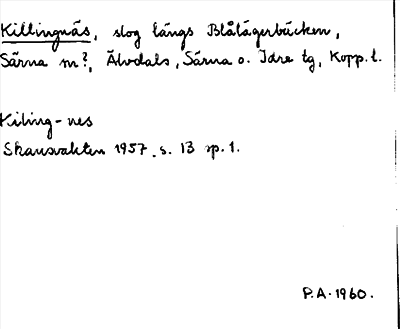 Killingnäs, slog längs Blålägerbäcken,
Särna m?, Älvdals, Särna o. Idre tg, Kopp. l.
Kiling-nes
Skansvakten 1957 s. 13 sp. 1.
P.A. 1960.